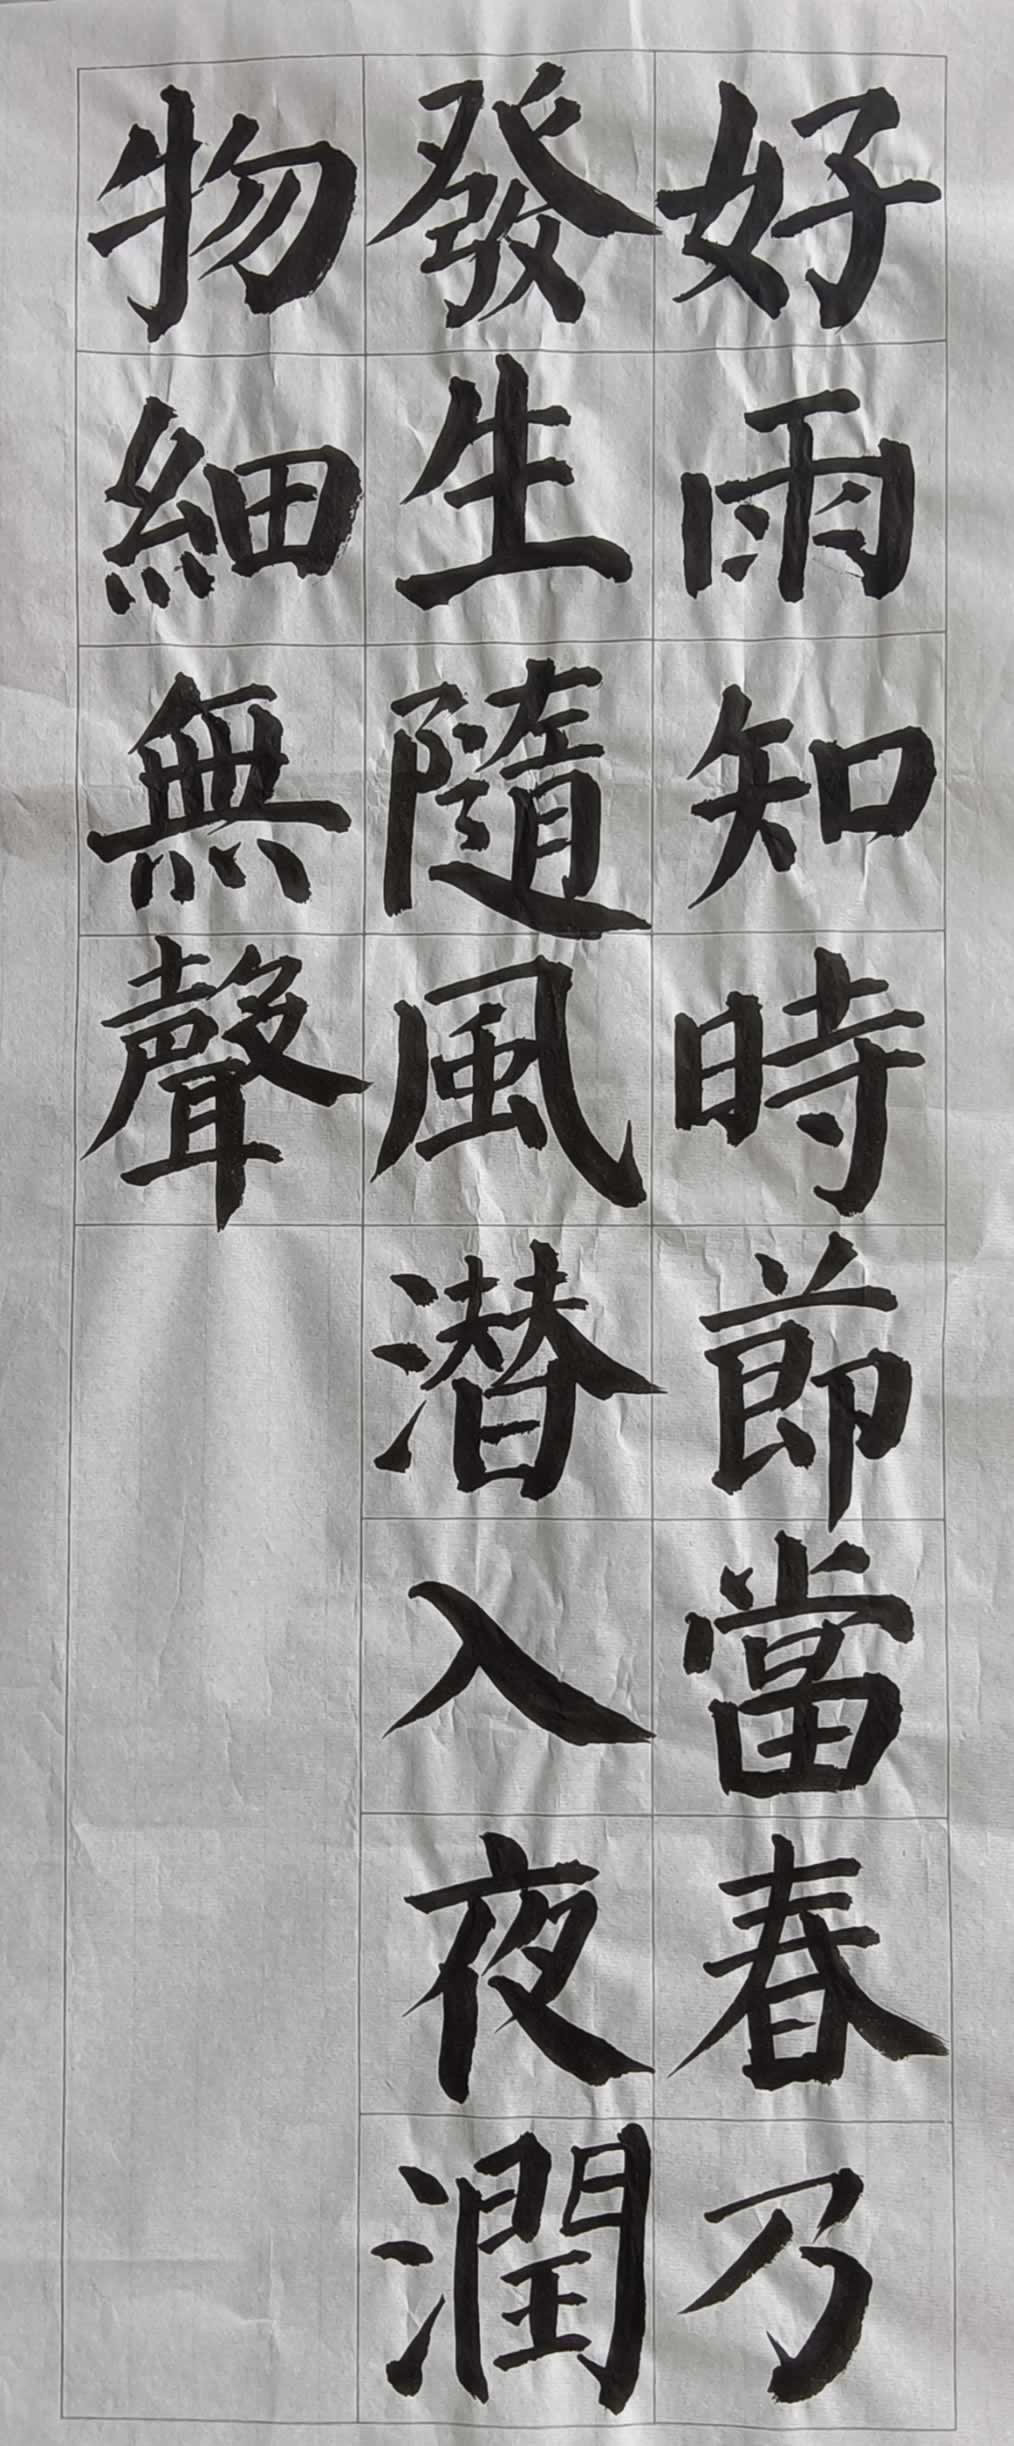 好雨知時節當春乃
發生隨風潜入夜潤
物細無聲